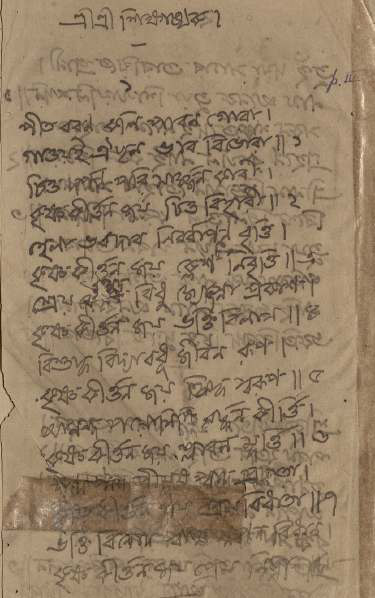 শ্রীশ্রী শিক্ষাষ্টক।
পীত বরণ কলি পাবন গোরা।
গাওয়ই ঐছন ভাব বিভোরা॥ ১
চিত্ত দর্পণ পরিমার্জ্জন কারী।
কৃষ্ণ কীর্ত্তন জয় চিত্ত বিহারী॥ ২
হেলা ভবদাব নিরবাপণ বৃত্তি।
কৃষ্ণ কীর্ত্তন জয় ক্লেশ নিবৃত্তি॥ ৩
শ্রেয় বিধু জ্যোৎস্না প্রকাশ।
কৃষ্ণ কীর্ত্তন জয় ভক্তি বিলাস॥ ৪
বিশুদ্ধ বিদ্যাবধূ জীবন রূপ।
কৃষ্ণ কীর্ত্তন জয় সিদ্ধ স্বরূপ॥ ৫
আনন্দ পয়োনিধি বর্দ্ধন কীর্ত্তি।
কৃষ্ণ কীর্ত্তন জয় প্লাবন মূর্ত্তি॥ ৬
পীযূষ স্বাদ প্রদাতা।
কীর্ত্তন জয় প্রেম বিধাতা॥ ৭
ভক্তি বিনোদ
কৃষ্ণ কীর্ত্তন জয় প্রেম